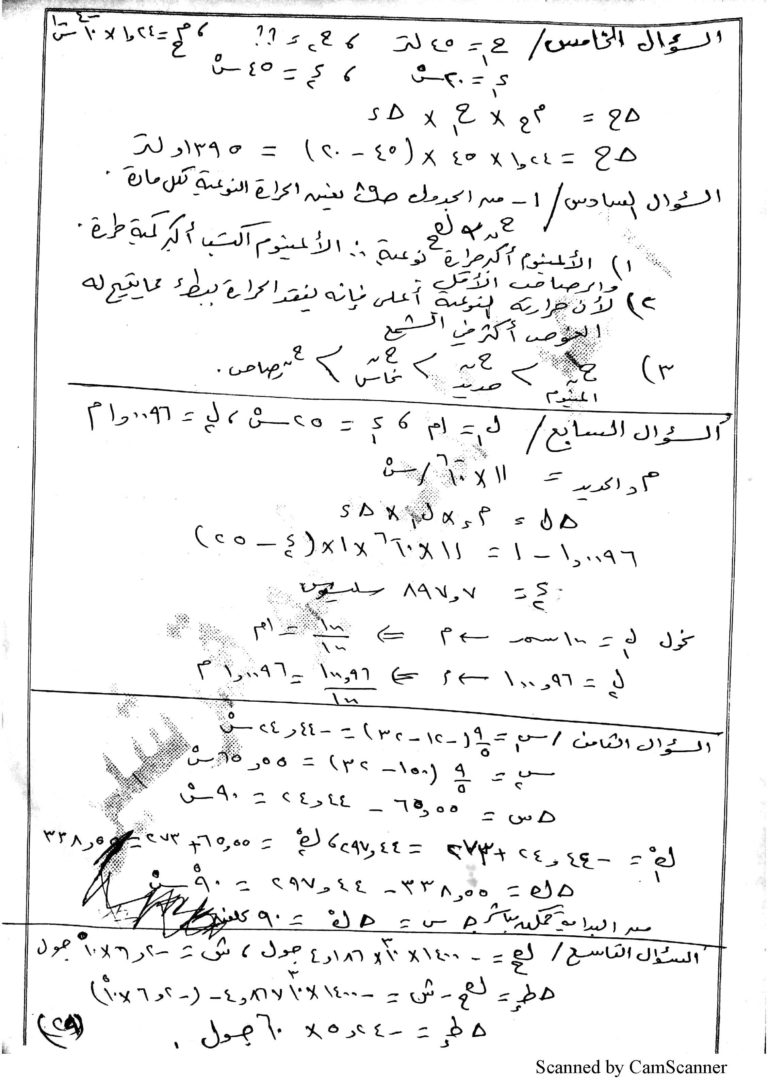 السؤال الخامس / ح١ = ٤٥ لتر ، ح٢ = ؟؟ ، مح = ١,٢٤ × ١٠-٤ /سْ
د١ = ٢٠ سْ ، د٢ = ٤٥ سْ
Δح = مح × ح١ × Δد
Δح = ١,٢٤ × ٤٥ × (٤٥ - ٢٠) = ١٣٩٥,٠ لتر
السؤال السادس / ١- من الجدول نعين الحرارة النوعية لكل مادة .
١) الألمنيوم أكبر حرارة نوعية ∴ الألمنيوم اكتسب أكبر كمية حرارة .
والرصاص الأقل
٢) لأن حرارته النوعية أعلى فإنه يفقد الحرارة ببطء مما يتيح له
الغوص أكثر في الشمع
٣) حن المنيوم > حن حديد > حن نحاس > حن رصاص .
السؤال السابع / ل١ = ١م ، د١ = ٢٥ سْ ، ل٢ = ١,٠٠٩٦ م
م الحديد = ١١ × ١٠-٦ /سْ
Δل = م × ل١ × Δد
١,٠٠٩٦ - ١ = ١١ × ١٠-٦ × ١ × (د٢ - ٢٥)
د٢ = ٨٩٧,٧ سليسيوس
نحول ل١ = ١٠٠ سم ← م ⇐ ١٠٠/١٠٠ = ١م
ل٢ = ١٠٠,٩٦ ← م ⇐ ١٠٠,٩٦/١٠٠ = ١,٠٠٩٦ م
السؤال الثامن / س١ = ٩/٥ (-١٢ - ٣٢) = -٢٤,٤٤ سْ
س٢ = ٩/٥ (١٥٠ - ٣٢) = ٦٥,٥٥ سْ
Δس = ٦٥,٥٥ - ٢٤,٤٤ = ٩٠ سْ
كْ١ = -٢٤,٤٤ + ٢٧٣ = ٢٩٧,٤٤ ، كْ٢ = ٦٥,٥٥ + ٢٧٣ = ٣٣٨,٥٥
Δك = ٣٣٨,٥٥ - ٢٩٧,٤٤ = ٩٠ْ
من البداية يمكن مباشرة Δس = Δكْ = ٩٠ كلفن
السؤال التاسع / كح = -١٤٠٠ × ١٠٣ × ٤,١٨٦ جول ، ش = -٦,٢ × ١٠٥ جول
Δط = كح - ش = -١٤٠٠ × ١٠٣ × ٤,١٨٦ - (-٦,٢ × ١٠٥)
Δط = -٥,٢٤ × ١٠٦ جول .
(٢٩)
Scanned by CamScanner